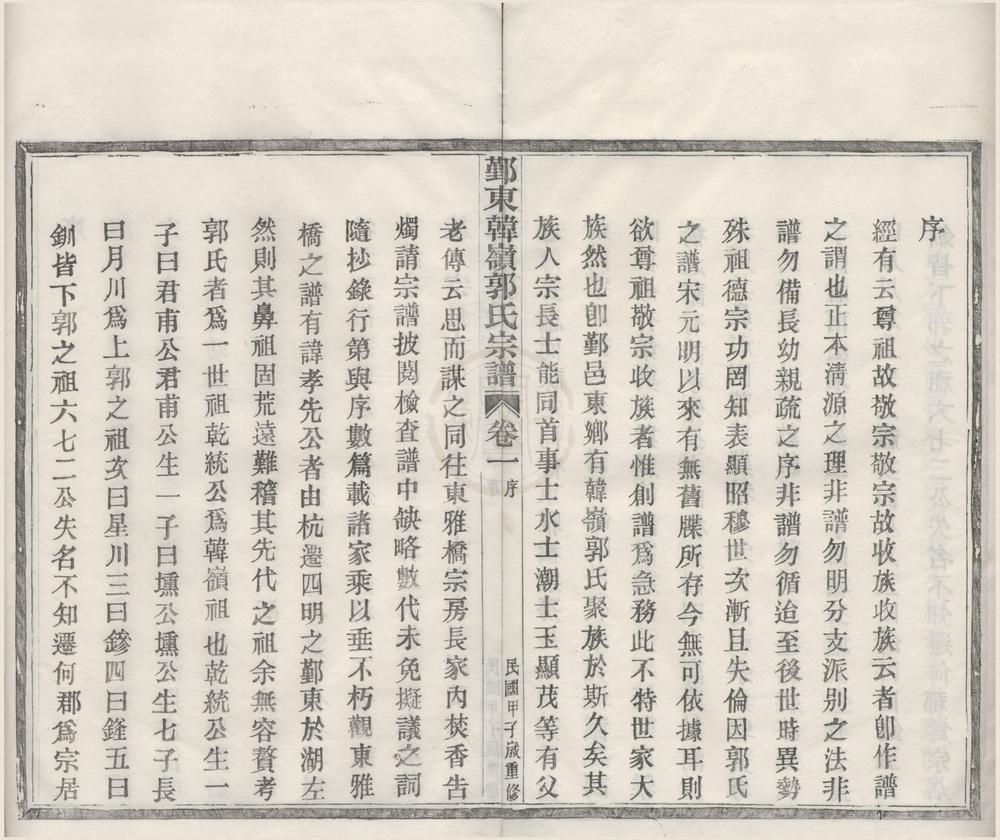 序
經有云尊祖故敬宗敬宗故收族收族云者卽作譜
之謂也正本淸源之理非譜勿明分支派别之法非
譜勿備長幼親疏之序非譜勿循迨至後世時異勢
殊祖德宗功罔知表顯昭穆世次漸且失倫因郭氏
之譜宋元明以來有無舊牒所存今無可依據耳則
欲尊祖敬宗收族者惟創譜爲急務此不特世家大
族然也卽鄞邑東鄕有韓嶺郭氏聚族於斯久矣其
族人宗長士能同首事士水士潮士玉顯茂等有父
鄞東韓嶺郭氏宗譜 卷一 序 民國甲子歲重修
老傳云思而謀之同往東雅橋宗房長家內焚香吿
燭請宗譜披閱檢查譜中缺略數代未免擬議之詞
隨抄錄行第與序數篇載諸家乘以垂不朽觀東雅
橋之譜有諱孝先公者由杭遷四明之鄞東於湖左
然則其鼻祖固荒遠難稽其先代之祖余無容贅考
郭氏者爲一世祖乾統公爲韓嶺祖也乾統公生一
子曰君甫公君甫公生一子曰壎公壎公生七子長
曰月川爲上郭之祖次曰星川三曰鏒四曰鋒五曰
釧皆下郭之祖六七二公失名不知遷何郡爲宗居